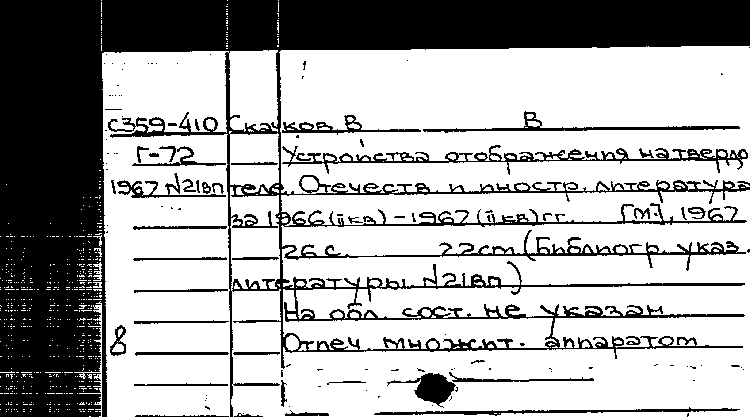 С359-410 Скачков, В В
Г-72 Устройства отображения на твердо
1967 N21вп теле. Отечеств. и иностр. литература
за 1966 (II кв) - 1967 (II кв) гг. [М.], 1967
26 с. 22 cm (Библиогр. указ.
литературы. N21вп)
На обл. сост. не указан
8 Отпеч. множит. аппаратом.